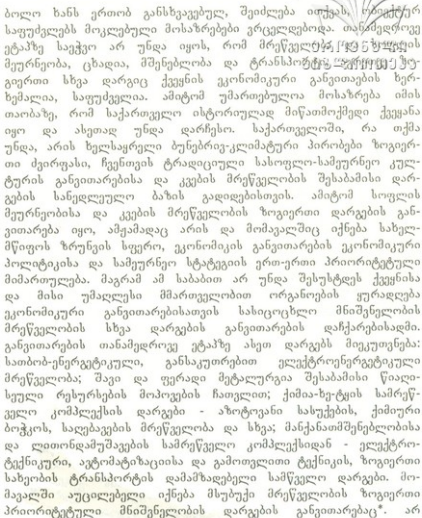 ბოლო ხანს ერთობ განსხვავებულ, შეიძლება ითქვას, ობიექტურ
საფუძვლებს მოკლებული მოსაზრებები ვრცელდებოდა. თანამედროვე
ეტაპზე საეჭვო არ უნდა იყოს, რომ მრეწველობა,
მეურნეობა, ცხადია, მშენებლობა და ტრანსპორტი
გიერთი სხვა დარგიც ქვეყნის ეკონომიკური განვითაების ხერ-
ხემალია, საფუძველია. ამიტომ უმართებულოა მოსაზრება იმის
თაობაზე, რომ საქართველო ისტორიულად მიწათმოქმედი ქვეყანა
იყო და ასეთად უნდა დარჩესო. საქართველოში, რა თქმა
უნდა, არის ხელსაყრელი ბუნებრივ-კლიმატური პირობები ზოგიერ-
თი ძვირფასი, ჩვენთვის ტრადიციული სასოფლო-სამეურნეო კულ-
ტურის განვითარებისა და კვების მრეწველობის შესაბამისი დარ-
გების სანედლეულო ბაზის გადიდებისთვის. ამიტომ სოფლის
მეურნეობისა და კვების მრეწველობის ზოგიერთი დარგების გან-
ვითარება იყო, ამჟამადაც არის და მომავალშიც იქნება სახელ-
მწიფოს ზრუნვის სფერო, ეკონომიკის განვითარების ეკონომიკური
პოლიტიკისა და სამეურნეო სტატეგიის ერთ-ერთი პრიორიტეტული
მიმართულება. მაგრამ ამ საბაბით არ უნდა შესუსტდეს ქვეყნისა
და მისი უმაღლესი მმართველობით ორგანოების ყურადღება
ეკონომიკური განვითარებისათვის სასიცოცხლო მნიშვნელობის
მრეწველობის სხვა დარგების განვითარების დაჩქარებისადმი.
განვითარების თანამედროვე ეტაპზე ასეთ დარგებს მიეკუთვნება:
სათბობ-ენერგეტიკული, განსაკუთრებით ელექტროენერგეტიკული
მრეწველობა; შავი და ფერადი მეტალურგია შესაბამისი წიაღი-
სეული რესურსების მოპოვების ჩათვლით; ქიმია-ხე-ტყის სამრეწ-
ველო კომპლექსის დარგები - აზოტოვანი სასუქების, ქიმიური
ბოჭკოს, საღებავების მრეწველობა და სხვა; მანქანათმშენებლობისა
და ლითონდამუშავების სამრეწველო კომპლექსიდან - ელექტრო-
ტექნიკური, ავტომატიზაციისა და გამოთვლითი ტექნიკის, ზოგიერთი
სახეობის ტრანსპორტის დამამზადებელი სამწველო დარგები. მო-
მავალში აუცილებელი იქნება მსუბუქი მრეწველობის ზოგიერთი
პრიორიტეტული მნიშვნელობის დარგების განვითარებაც*. არ